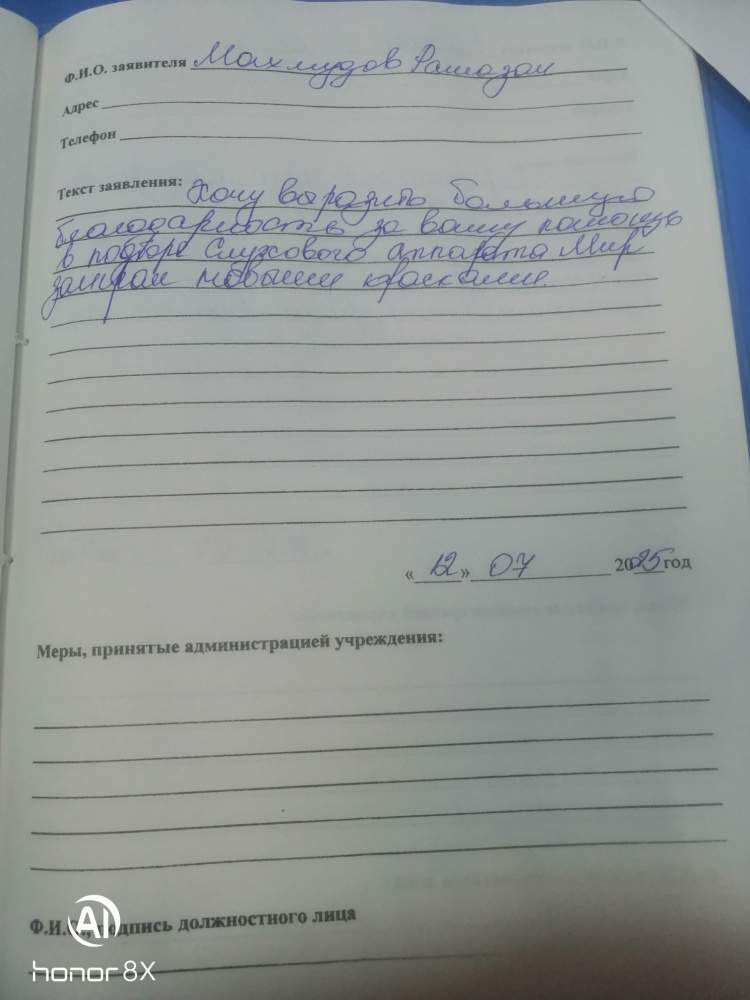 Ф.И.О. заявителя Махмудов Рамазан
Адрес
Телефон
Текст заявления: Хочу выразить большую
благодарность за вашу помощь
в подборе слухового аппарата Мир
заиграл новыми красками.
«12» 07 2025 год
Меры, принятые администрацией учреждения:
Ф.И.О., подпись должностного лица
AI
honor 8X